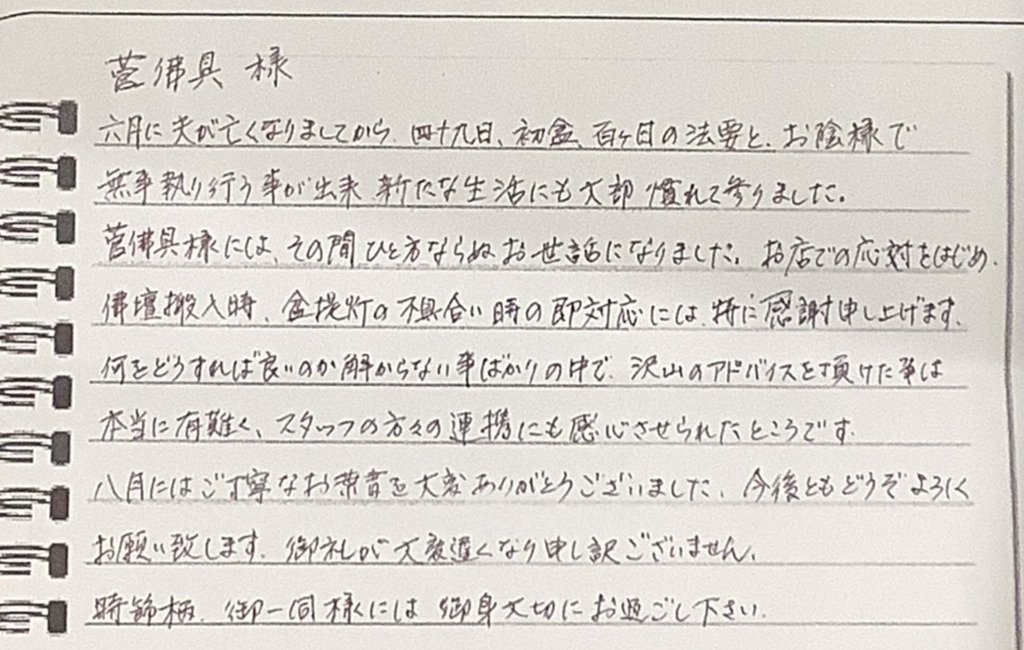 菅佛具 様
六月に夫が亡くなりましてから、四十九日、初盆、百ヶ日の法要と、お陰様で
無事執り行う事が出来 新たな生活にも大部 慣れて参りました。
菅佛具様には、その間ひと方ならぬお世話になりました。お店での応対をはじめ、
佛壇搬入時、盆提灯の不具合い時の即対応には、特に感謝申し上げます。
何をどうすれば良いのか解からない事ばかりの中で、沢山のアドバイスを頂けた事は
本当に有難く、スタッフの方々の連携にも感心させられたところです。
八月にはご丁寧なお葉書を大変ありがとうございました。今後ともどうぞよろしく
お願い致します。御礼が大変遅くなり申し訳ございません。
時節柄、御一同様には御身大切にお過ごし下さい。